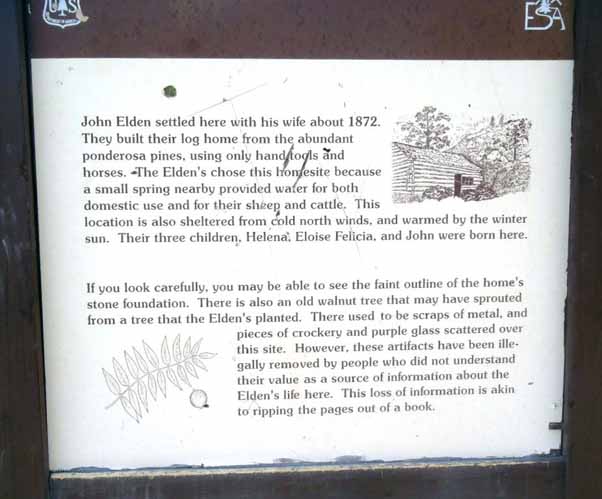 U S
ESA
John Elden settled here with his wife about 1872.
They built their log home from the abundant
ponderosa pines, using only hand tools and
horses. The Elden's chose this homesite because
a small spring nearby provided water for both
domestic use and for their sheep and cattle. This
location is also sheltered from cold north winds, and warmed by the winter
sun. Their three children, Helena, Eloise Felicia, and John were born here.
If you look carefully, you may be able to see the faint outline of the home's
stone foundation. There is also an old walnut tree that may have sprouted
from a tree that the Elden's planted. There used to be scraps of metal, and
pieces of crockery and purple glass scattered over
this site. However, these artifacts have been ille-
gally removed by people who did not understand
their value as a source of information about the
Elden's life here. This loss of information is akin
to ripping the pages out of a book.